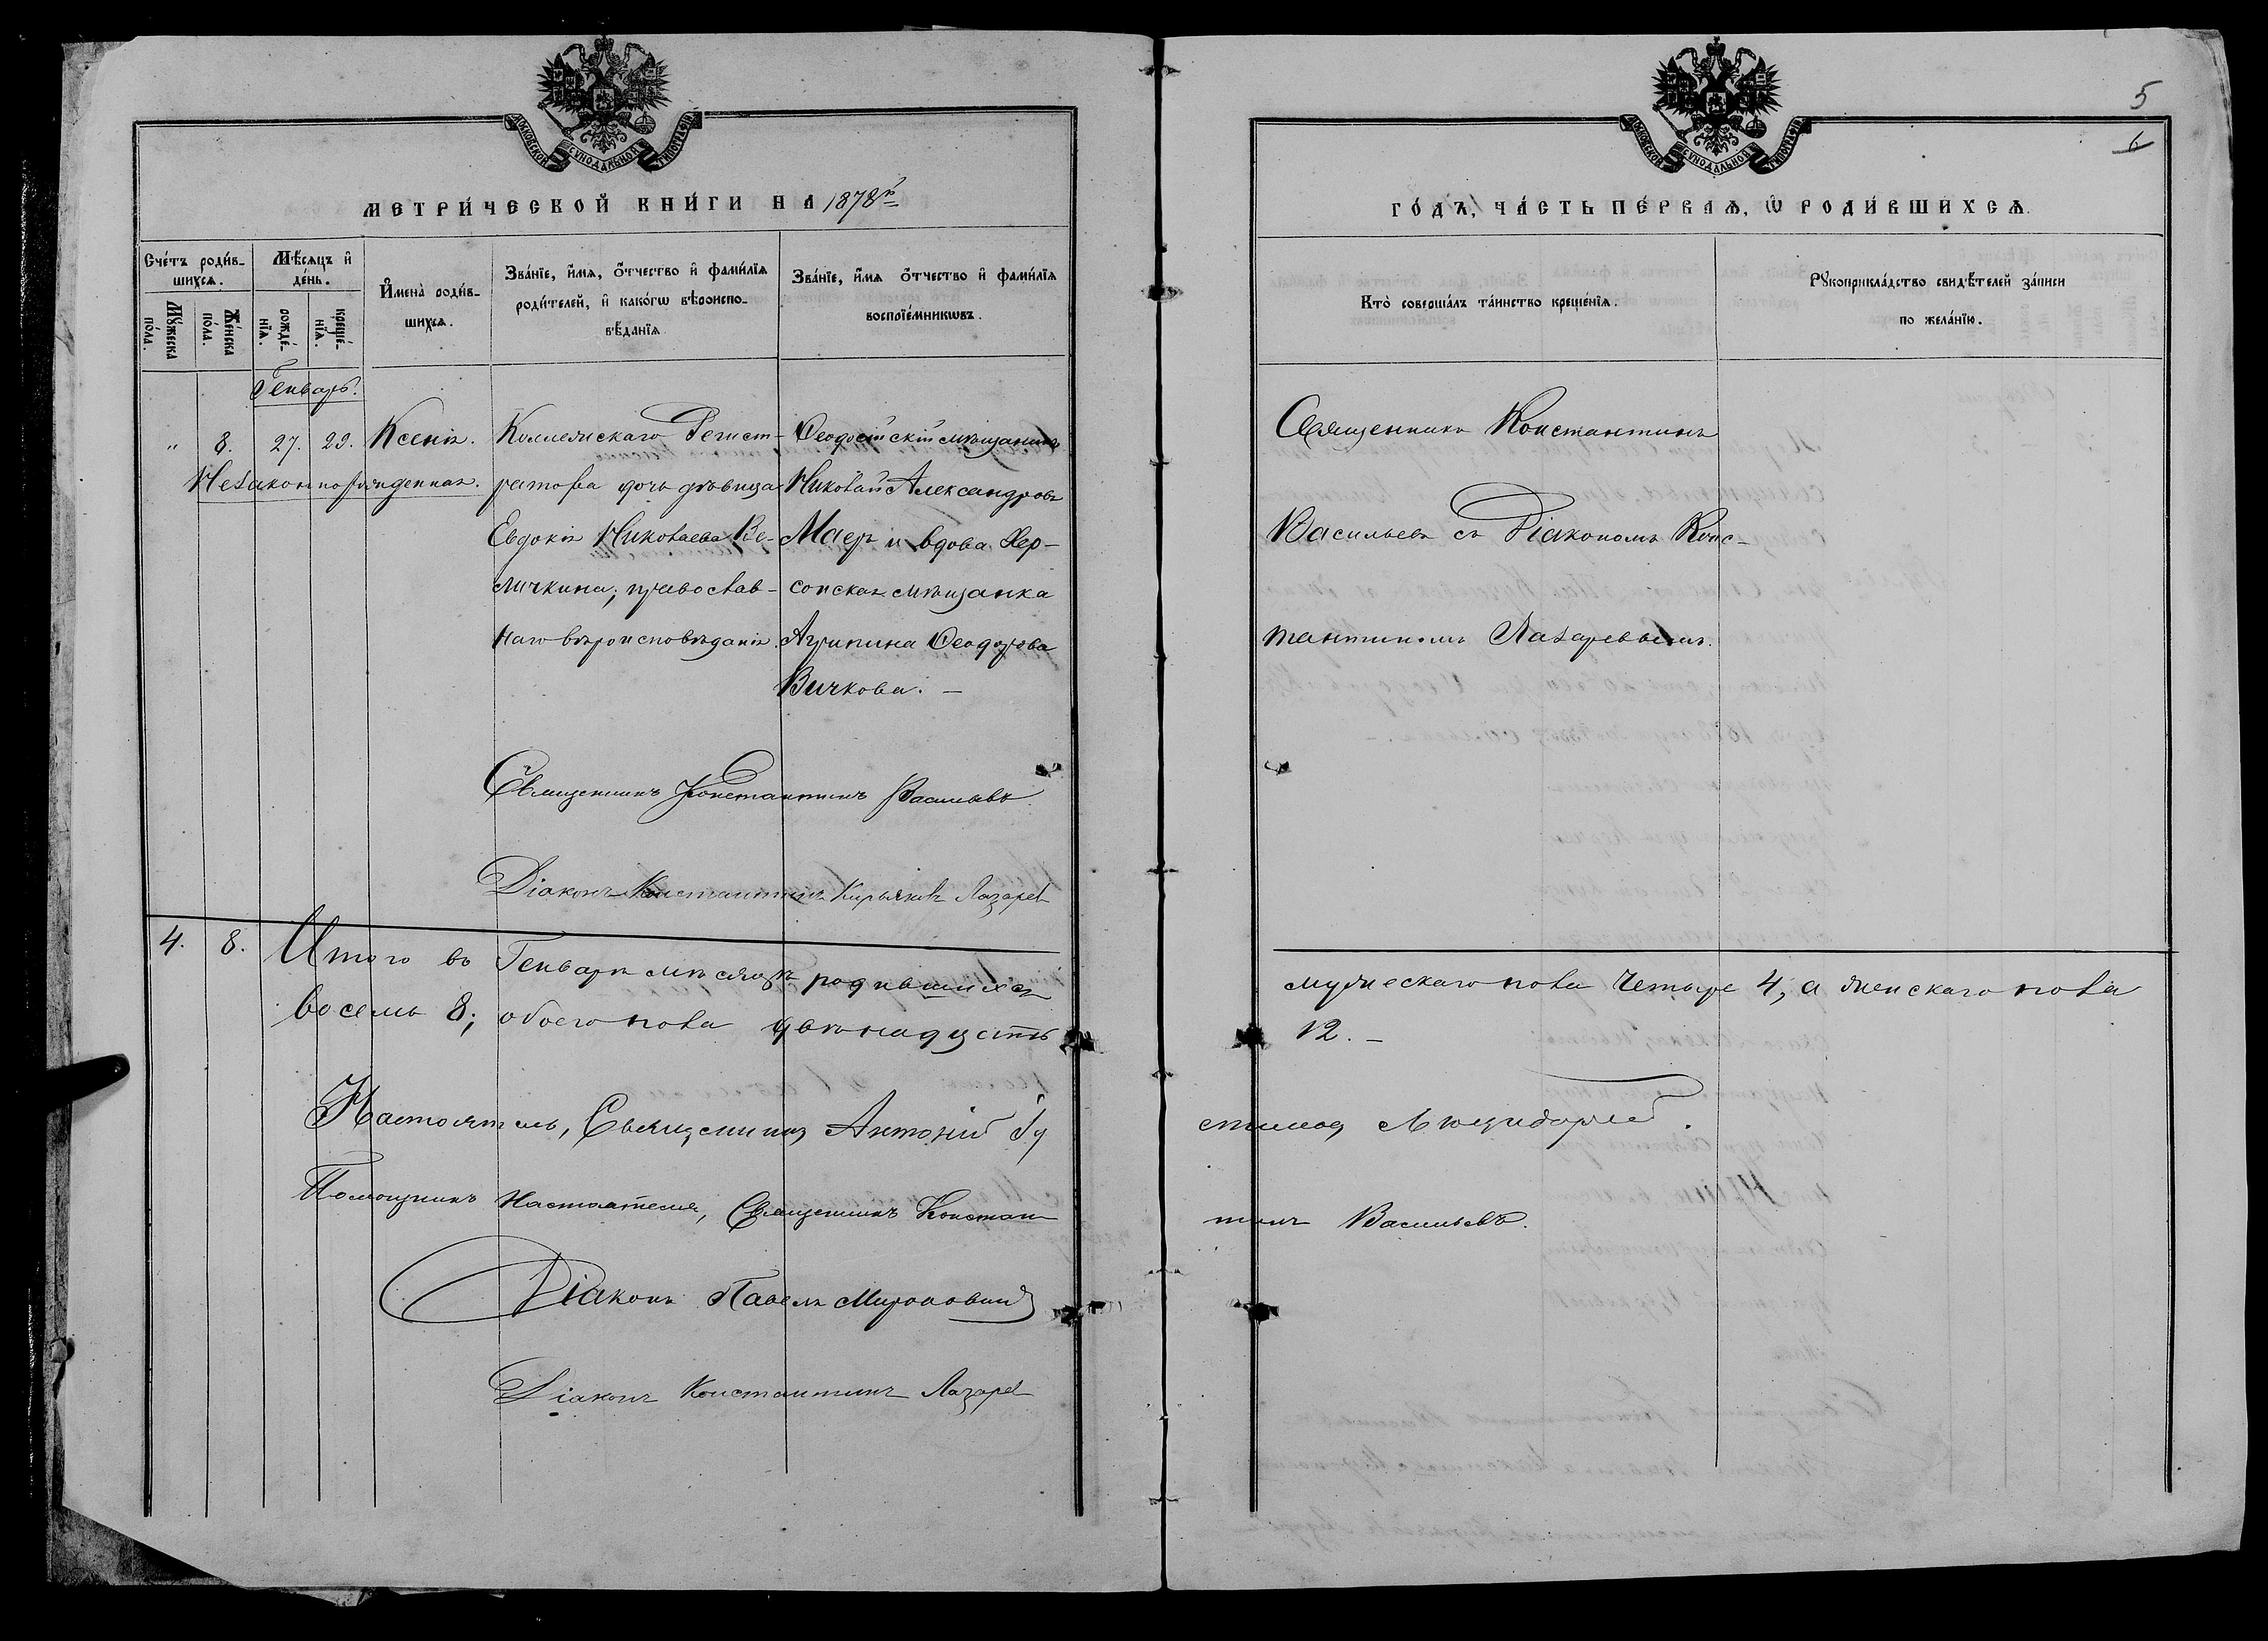 МОСКОВСКОЙ СѴНОДАЛЬНОЙ ТИПОГРАФІИ
МЕТРИ́ЧЕСКОЙ КНИ́ГИ НА 1878й
Сче́тъ роди́в-
шихсѧ.
Мѣ́сѧцъ и҆
де́нь.
Мꙋ́жеска
по́ла.
Же́нска
по́ла.
рожде́-
нїѧ.
креще́-
нїѧ.
И҆мена̀ роди́в-
шихсѧ.
Зва́нїе, и҆́мѧ, ѻ҆́тчество и҆ фами́лїѧ
роди́телей, и҆ како́гѡ вѣроиспо-
вѣ́данїѧ
Зва́нїе, и҆́мѧ ѻ҆́тчество и҆ фами́лїѧ
воспрїе́мникѡвъ.
Генварь.
" 8. 27. 29. Ксенія.
Незаконнорожденная.
Коллежскаго Регист-
ратора дочь дѣвица
Евдокія Николаева Ве-
личкина; православ-
наго вѣроисповѣданія.
Ѳеодосійскій мѣщанинъ
Николай Александровъ
Маеръ и вдова Хер-
сонская мѣщанка
Агрипина Ѳеодорова
Вичкова. –
Священникъ Константинъ Васильевъ
Діаконъ Константинъ Кирьяковъ Лазарев
4. 8. Итого въ Генварѣ мѣсяцѣ родившихся
восемь 8; обоего пола двѣнадцать
Настоятель, Священникъ Антоній
Помощникъ Настоятеля, Священникъ Констан
Діаконъ Павелъ Мироновий
Діаконъ Константинъ Лазарев
5
6
МОСКОВСКОЙ СѴНОДАЛЬНОЙ ТИПОГРАФІИ
ГО́ДЪ, ЧА́СТЬ ПЕ́РВАѦ, Ѡ҆ РОДИ́ВШИХСѦ.
Кто̀ соверша́лъ та́инство креще́нїѧ.
Рꙋкоприкла́дство свидѣ́телей за́писи
по жела́нїю.
Священникъ Константинъ
Васильевъ съ Діакономъ Конс-
тантиномъ Лазаревымъ.
мужескаго пола Четыре 4, а женскаго пола
12. –
тинъ Васильевъ.